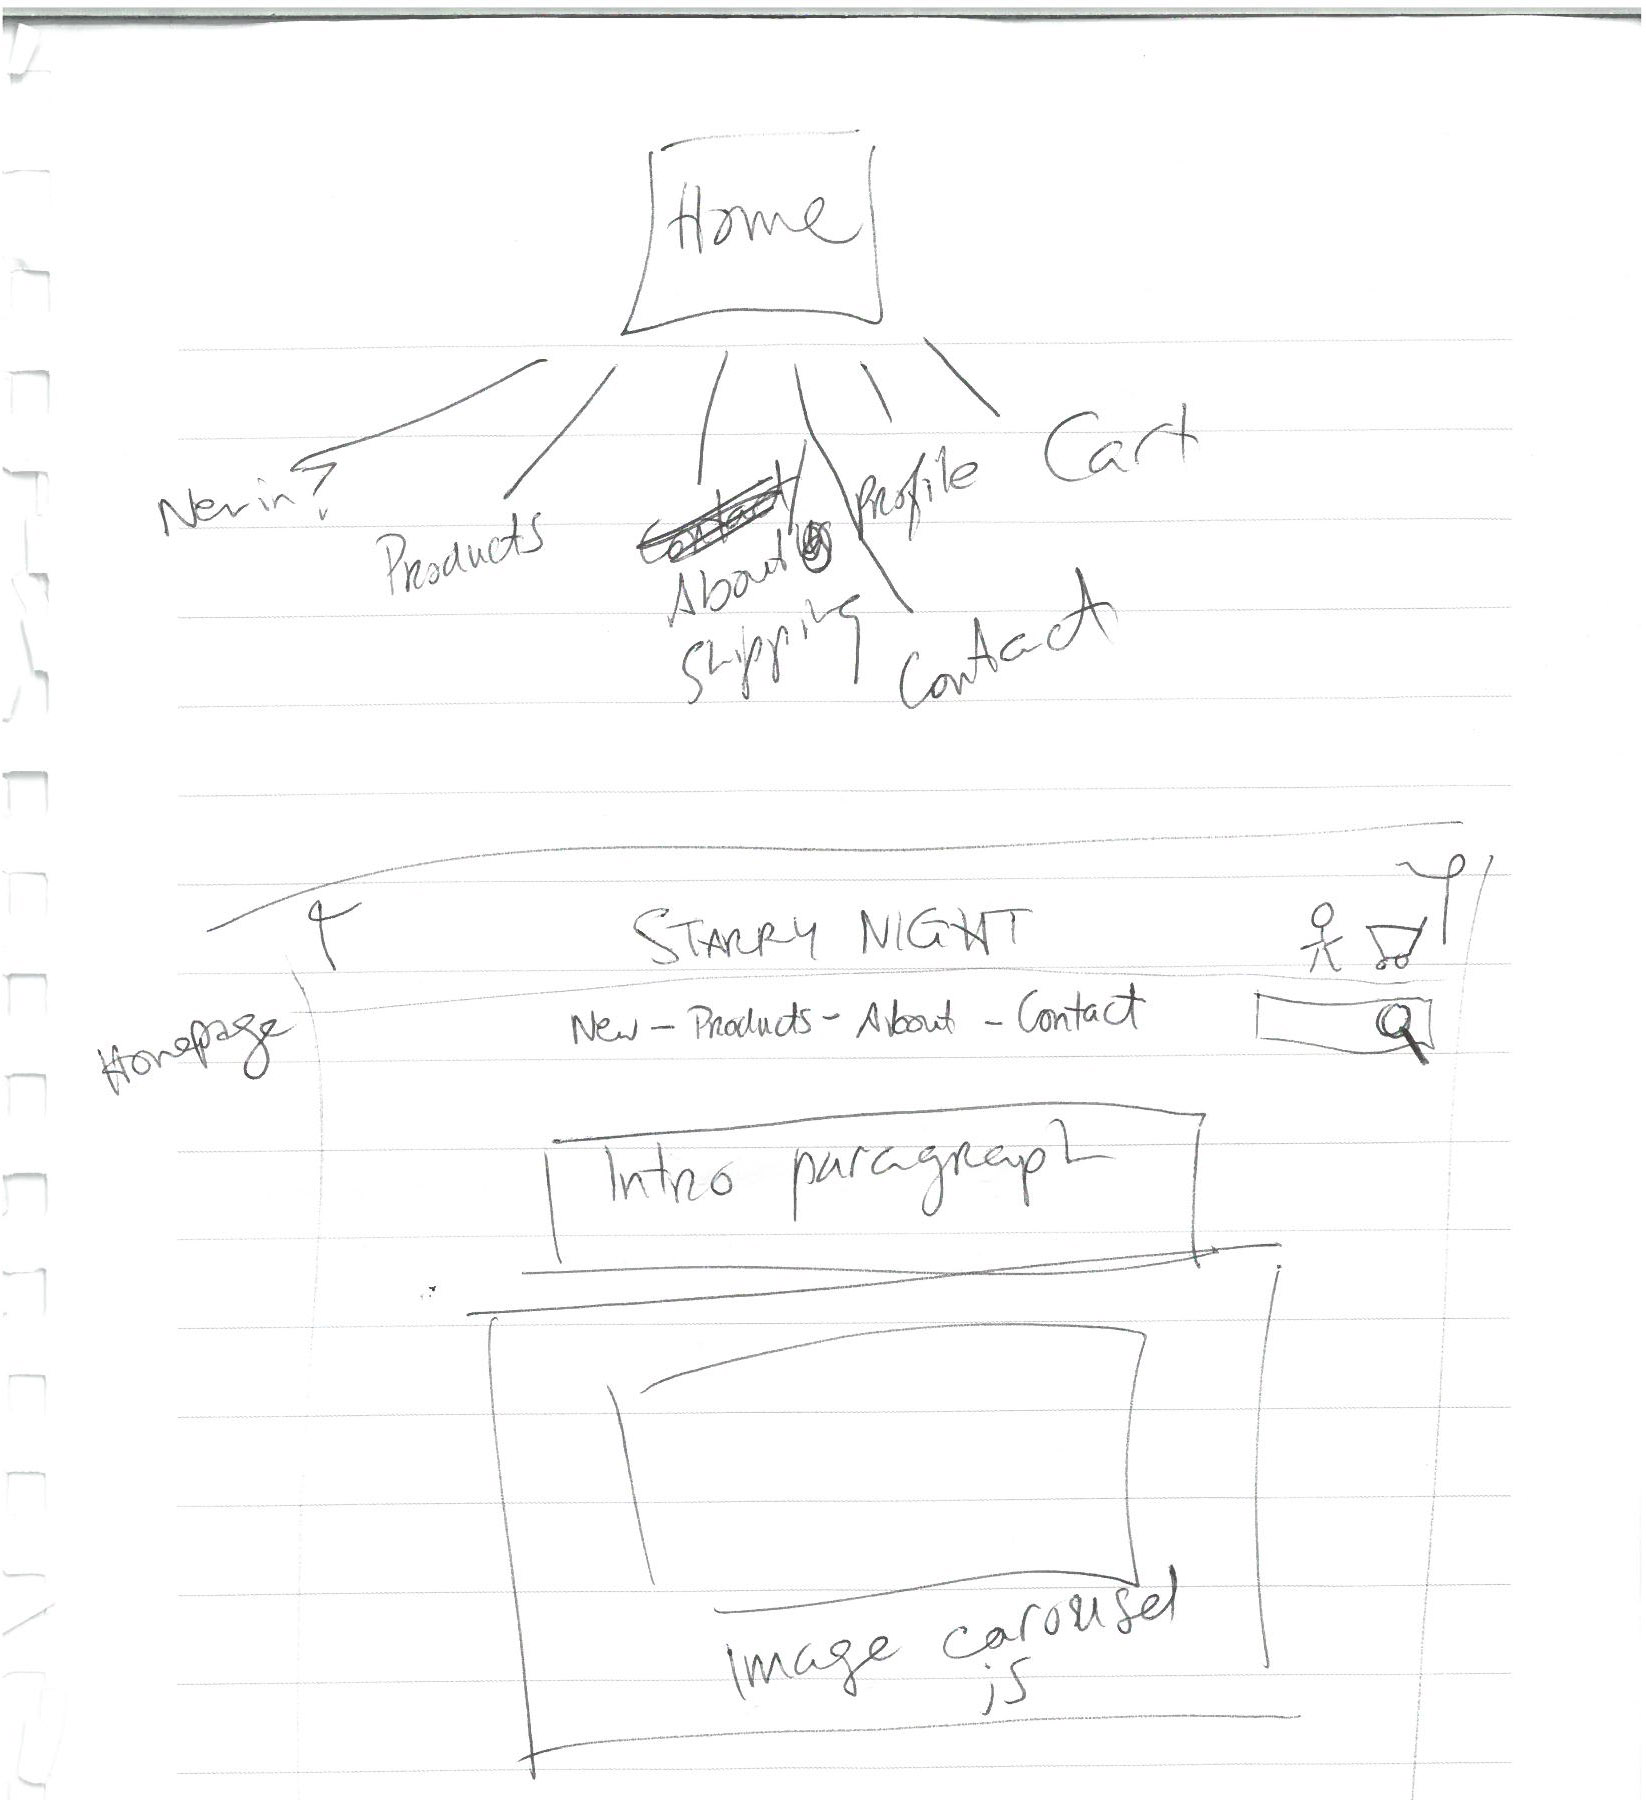 Home
New in?
Products
Contact
About us
Shipping
Profile
Cart
Contact
STARRY NIGHT
Homepage
New - Products - About - Contact
Intro paragraph
Image carousel
js